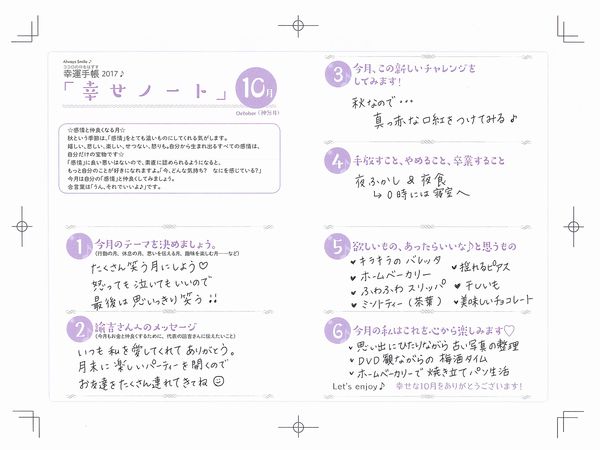 Always Smile♪
ココロの中をはずす
幸運手帳 2017♪
「幸せノート」
10月
October（神無月）
☆感情と仲良くなる月☆
秋という季節は、「感情」をとても濃いものにしてくれる気がします。
嬉しい、悲しい、楽しい、せつない、怒りも。自分から生まれ出るすべての感情は、
自分だけの宝物です☆
「感情」に良い悪いはないので、素直に認められるようになると、
もっと自分のことが好きになれますよ。「今、どんな気持ち？ なにを感じている？」
今月は自分の「感情」と仲良くしてみましょう。
合言葉は「うん、それでいいよ♪」です。
1 今月のテーマを決めましょう。
（行動の月、休息の月、思いを伝える月、趣味を楽しむ月……など）
たくさん笑う月にしよう♡
怒っても泣いてもいいので
最後は思いっきり笑う!!
2 諭吉さんへのメッセージ
（今月もお金と仲良くするために、代表の諭吉さんに伝えたいこと）
いつも私を愛してくれてありがとう。
月末に楽しいパーティーを開くので
お友達をたくさん連れてきてね☺
3 今月、この新しいチャレンジを
してみます！
秋なので・・・
真っ赤な口紅をつけてみる♪
4 手放すこと、やめること、卒業すること
夜ふかし & 夜食
↳0時には寝室へ
5 欲しいもの、あったらいいな♪と思うもの
♥キラキラのバレッタ
♥ホームベーカリー
♥ふわふわスリッパ
♥ミントティー（茶葉）
♥揺れるピアス
♥干しいも
♥美味しいチョコレート
6 今月の私はこれを心から楽しみます♡
♥思い出にひたりながら古い写真の整理
♥DVD観ながらの梅酒タイム
♥ホームベーカリーで焼き立てパン生活
Let's enjoy♪ 幸せな10月をありがとうございます！